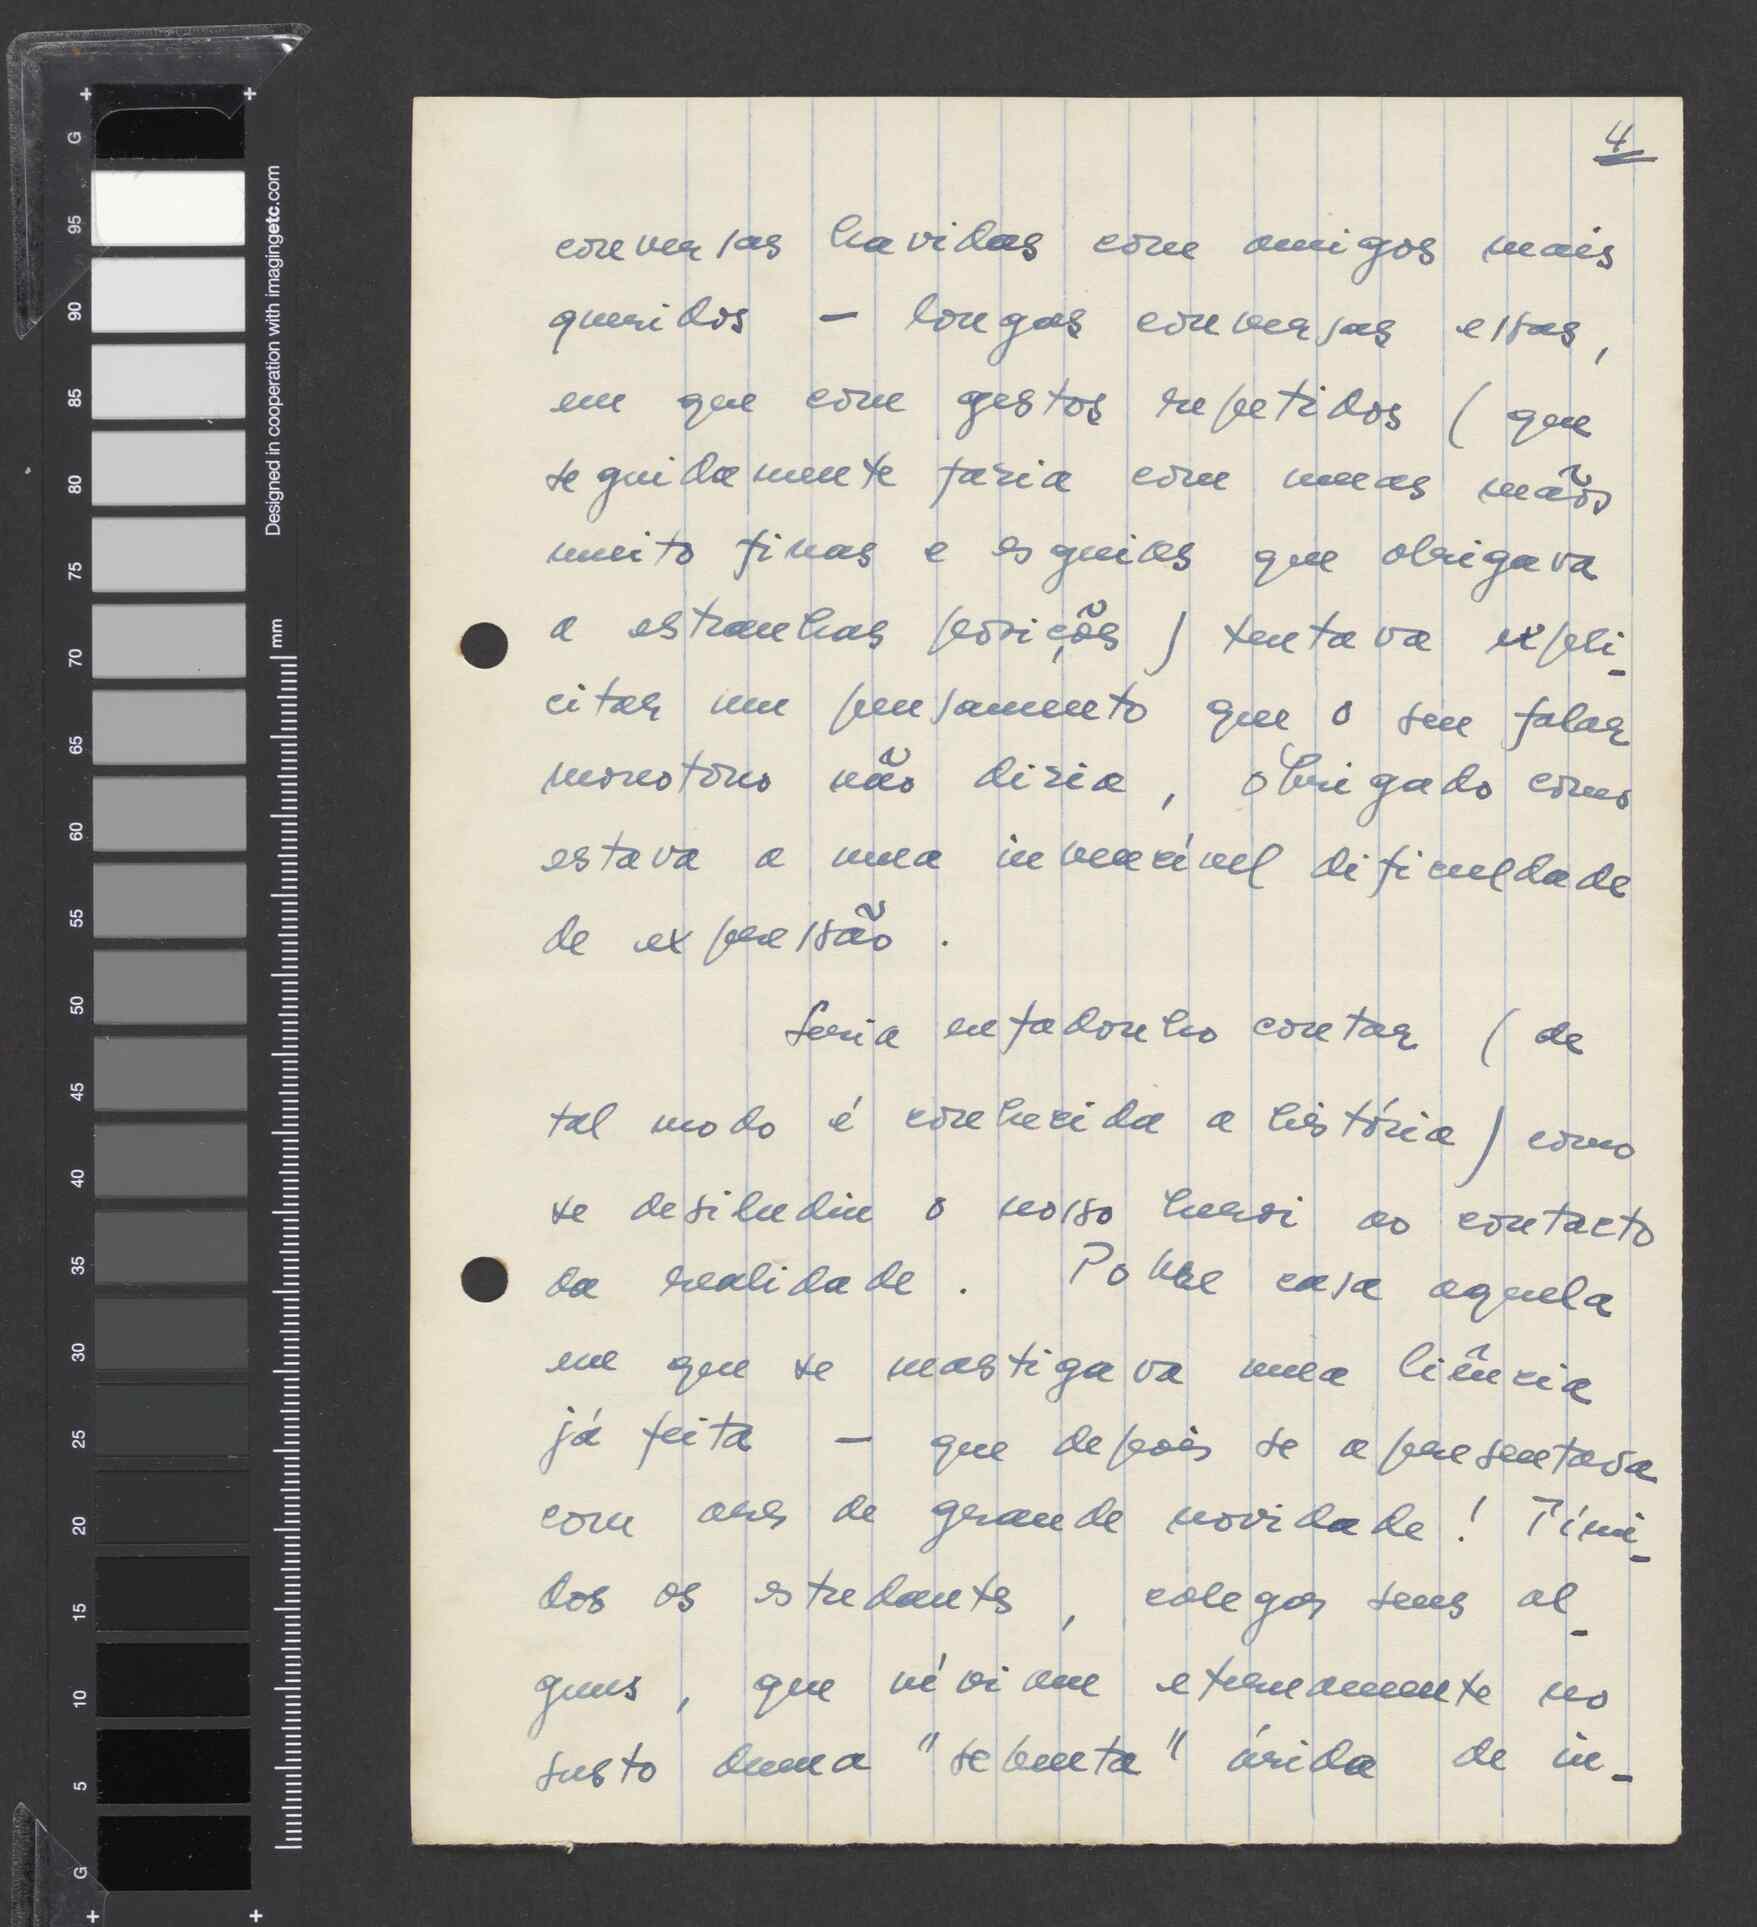 4
conversas havidas com amigos mais
queridos — longas conversas essas,
em que com gestos repetidos (que
seguidamente faria com umas mãos
muito finas e esguias que obrigava
a estranhas posições) tentava expli-
citar um pensamento que o seu falar
monotono não diria, obrigado como
estava a uma invencível dificuldade
de expressão.
Seria enfadonho contar (de
tal modo é conhecida a história) como
se desiludiu o nosso heroi ao contacto
da realidade. Pobre casa aquela
em que se mastigava uma ciência
já feita — que depois se apresentava
com ares de grande novidade! Tími-
dos os estudantes, colegas seus al-
guns, que viviam eternamente no
susto duma "sebenta" árida de in-
G
95
90
85
80
75
70
65
60
55
50
45
40
35
30
25
20
15
10
5
G
Designed in cooperation with imagingetc.com
mm